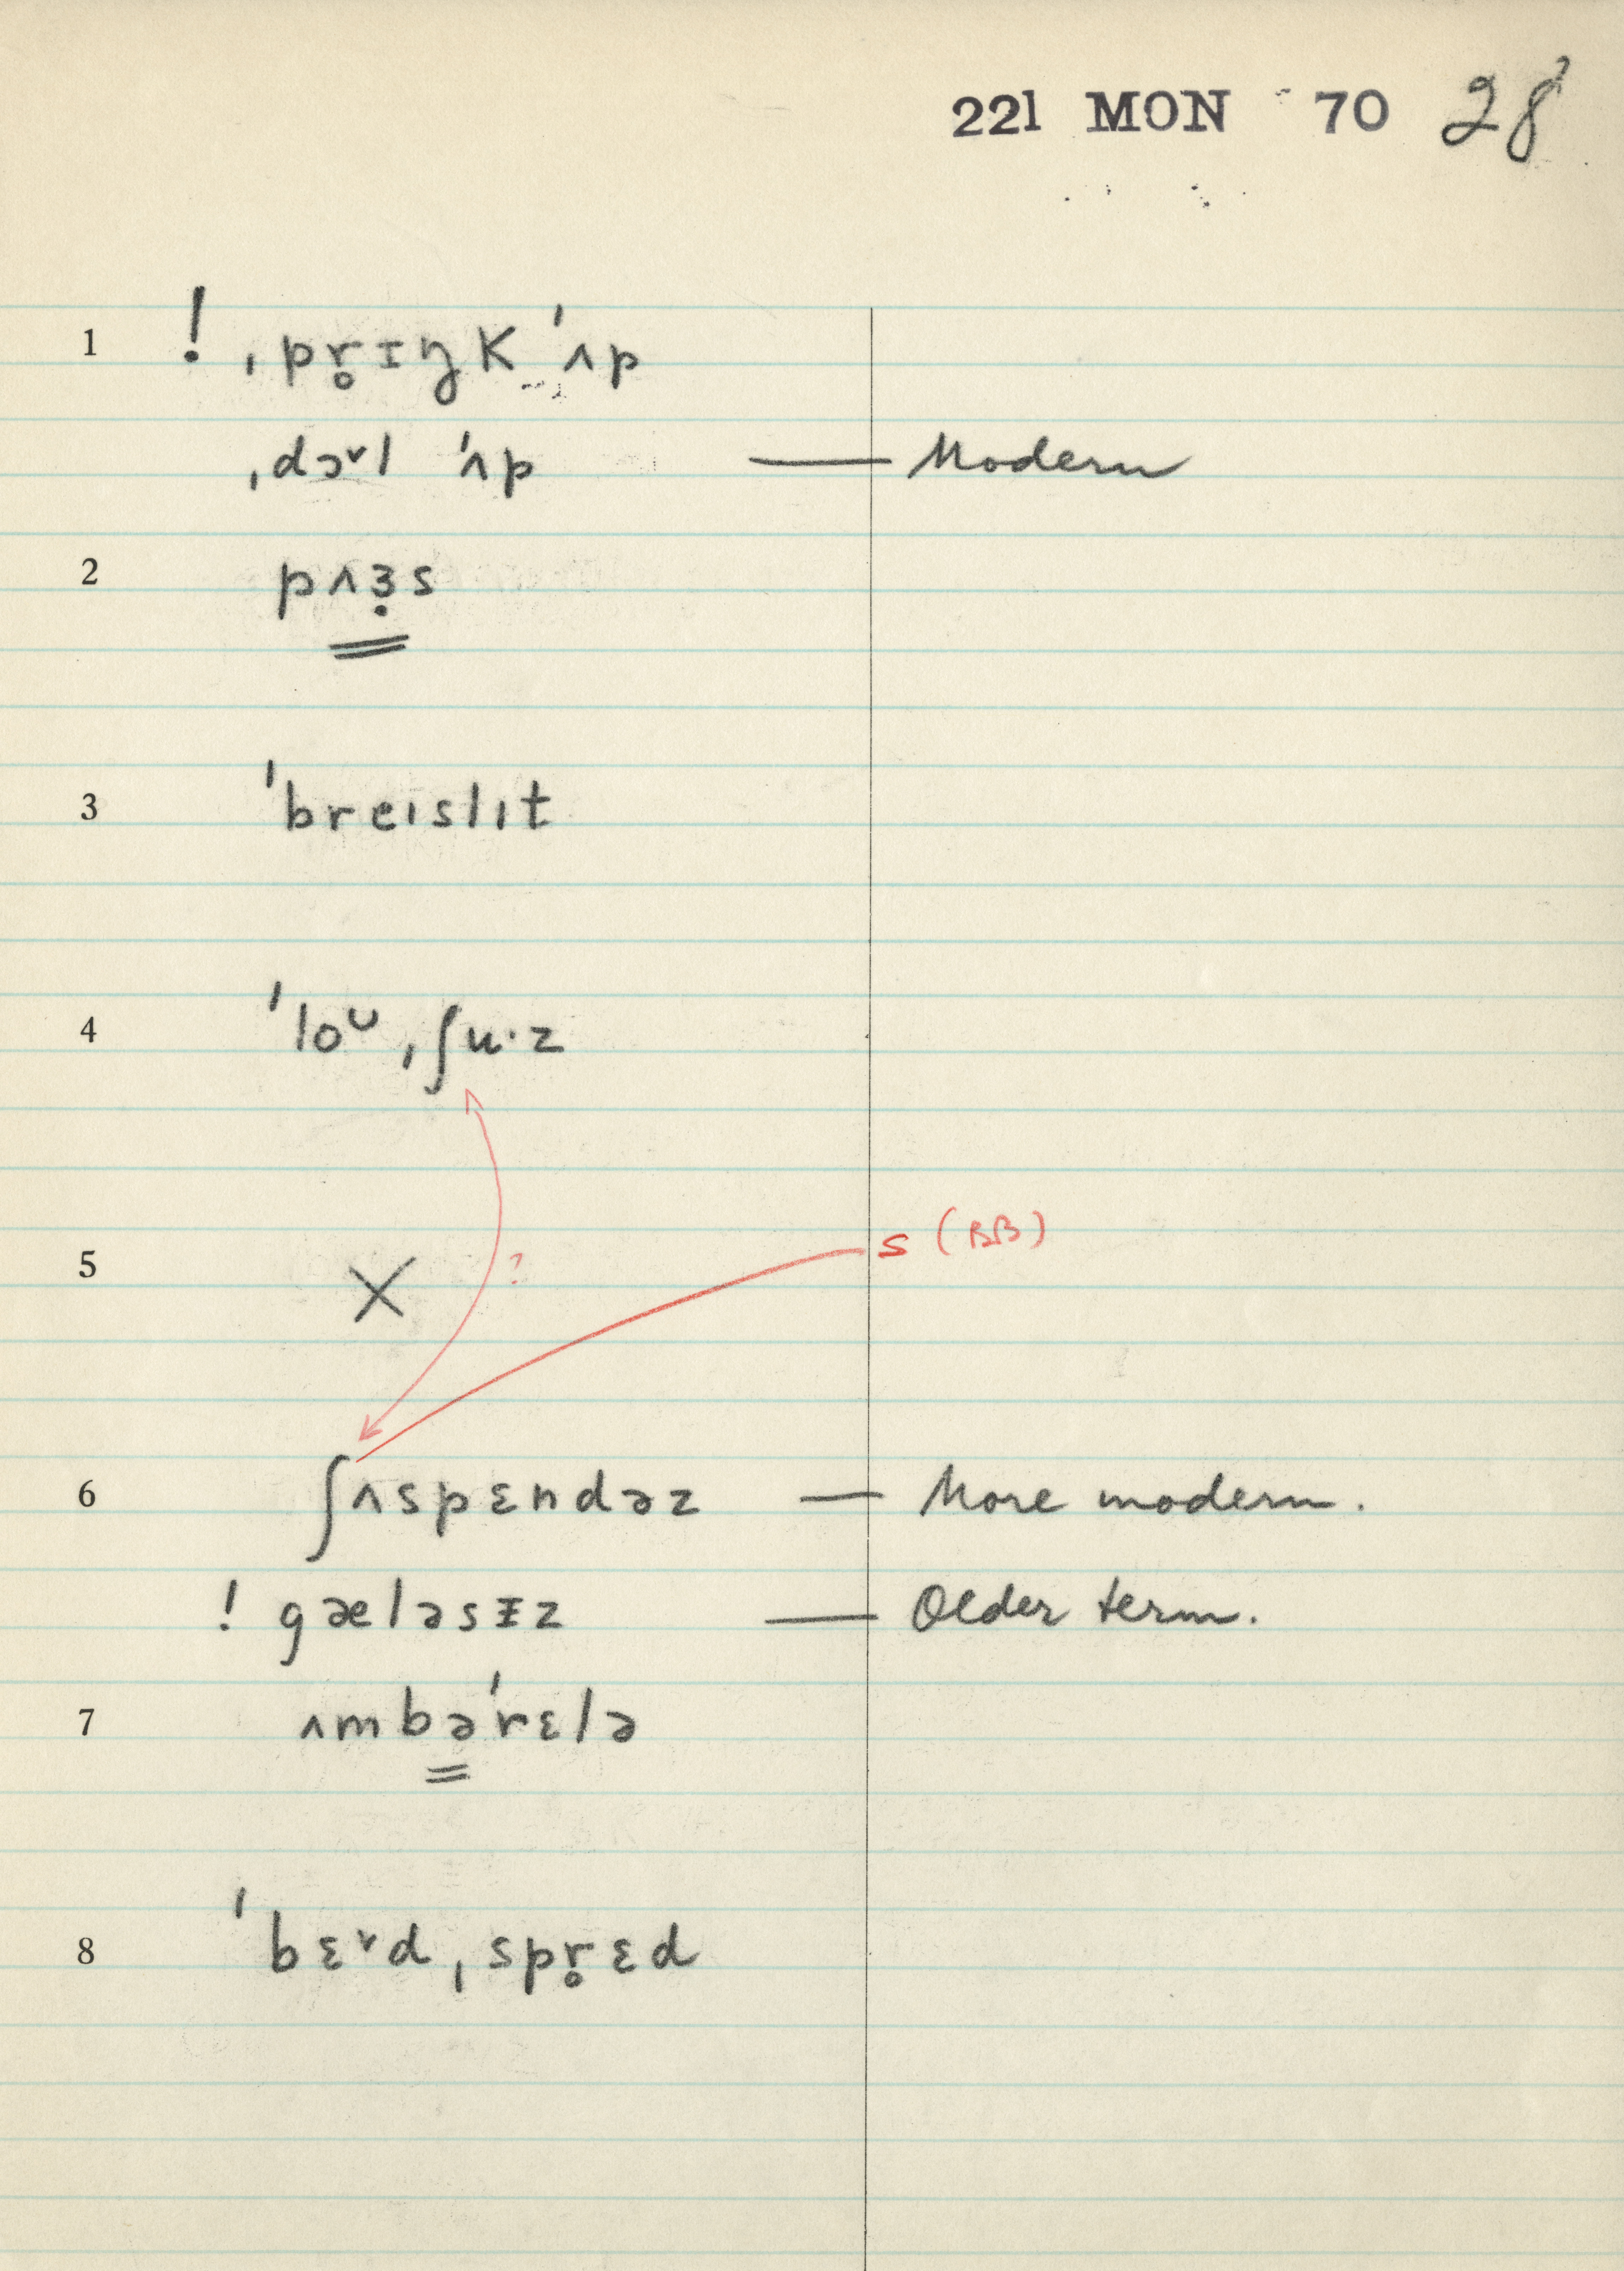 221 MON 70 28
1 ! ˌpr̥ɪŋk ˈʌp
ˌdɔᵛl ˈʌp — Modern
2 pʌɜ̣s
3 ˈbreɪslɪt
4 ˈloᶸˌʃu·z
5 X ? s (BB)
6 ʃʌspɛndəz — More modern.
! gæləsɪz — Older term.
7 ʌmbəˈrɛlə
8 ˈbɛᵛdˌspr̥ɛd